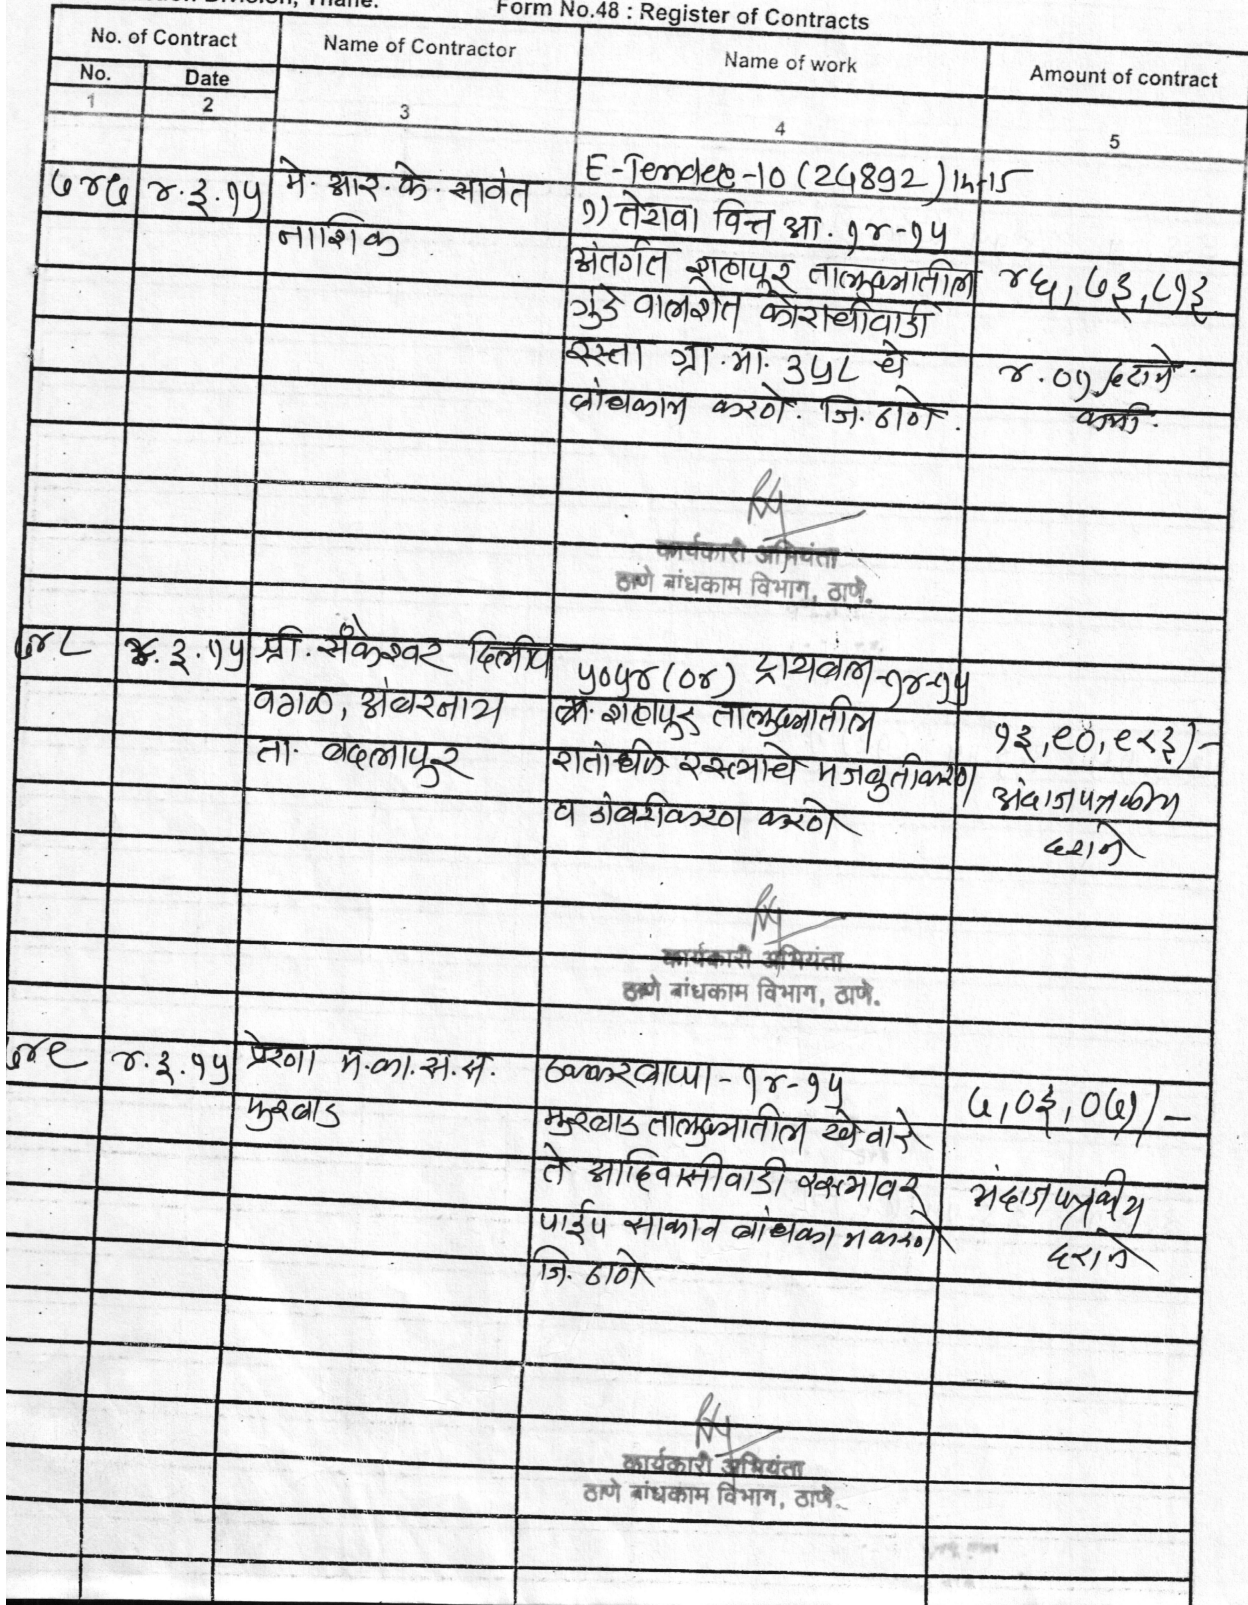 Division, Thane.
Form No.48 : Register of Contracts
No. of Contract
Name of Contractor
Name of work
Amount of contract
No.
Date
1
2
3
4
5
७४७
४.३.१५
मे. आर. के. सावंत
नाशिक
E-Tender-10 (24892) 14-15
१) तेरावा वित्त आ. १४-१५
अंतर्गत शहापूर तालुक्यातील
गुंडे वालशेत कोराथीवाडी
रस्ता ग्रा.मा. ३५८ चे
बांधकाम करणे. जि. ठाणे.
४६,७३,८१३
४.०१
कमी.
कार्यकारी अभियंता
ठाणे बांधकाम विभाग, ठाणे.
७४८
४.३.१५
श्री. संकेश्वर दिलीप
वगळ, अंबरनाथ
ता. बदलापूर
५०५४ (०४) ट्रायबल-१४-१५
तालुक्यातील
रस्त्याचे मजबुतीकरण
व डांबरीकरण करणे
१३,९०,९२३/-
अंदाजपत्रकीय
दराने
कार्यकारी अभियंता
ठाणे बांधकाम विभाग, ठाणे.
७४९
४.३.१५
प्रेरणा म.का.स.सं.
मुरबाड
ठक्करबाप्पा - १४-१५
मुरबाड तालुक्यातील खेवारे
ते आदिवासीवाडी रस्त्यावर
पाईप साकाव बांधकाम करणे
जि. ठाणे
७,०३,०७१/-
अंदाजपत्रकीय
दराने
कार्यकारी अभियंता
ठाणे बांधकाम विभाग, ठाणे.